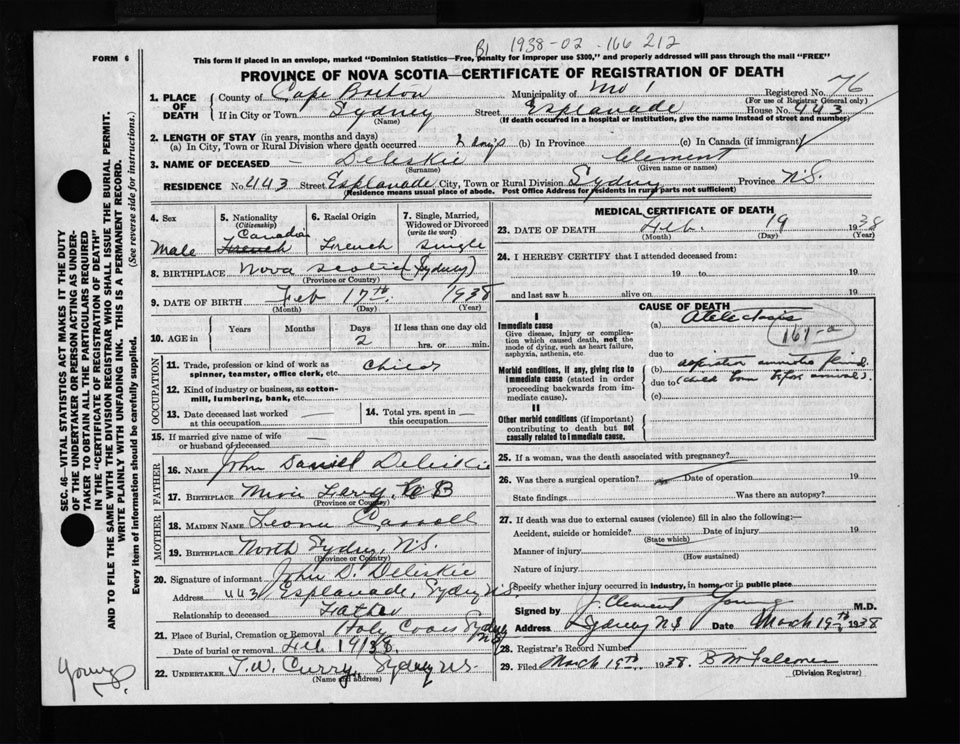 B1 1938-02-166 212
FORM 6
This form if placed in an envelope, marked "Dominion Statistics—Free, penalty for improper use $300," and properly addressed will pass through the mail "FREE"
PROVINCE OF NOVA SCOTIA—CERTIFICATE OF REGISTRATION OF DEATH
Registered No. 76
(For use of Registrar General only)
1. PLACE OF DEATH
County of Cape Breton
Municipality of
If in City or Town Sydney
(Name)
Street Esplanade
House No. 443
(If death occurred in a hospital or institution, give the name instead of street and number)
2. LENGTH OF STAY (in years, months and days)
(a) In City, Town or Rural Division where death occurred 2 days (b) In Province (c) In Canada (if immigrant)
3. NAME OF DECEASED — Deliskie Clement
(Surname) (Given name or names)
RESIDENCE No. 443 Street Esplanade City, Town or Rural Division Sydney Province N.S.
(Residence means usual place of abode. Post Office Address for residents in rural parts not sufficient)
4. Sex
Male
5. Nationality
(Citizenship)
Canadian
French
6. Racial Origin
French
7. Single, Married, Widowed or Divorced
(write the word)
Single
8. BIRTHPLACE Nova Scotia (Sydney)
(Province or Country)
9. DATE OF BIRTH Feb 17th. 1938
(Month) (Day) (Year)
10. AGE in
Years Months Days If less than one day old
2 hrs. or min.
OCCUPATION
11. Trade, profession or kind of work as spinner, teamster, office clerk, etc. Child
12. Kind of industry or business, as cotton-mill, lumbering, bank, etc. —
13. Date deceased last worked at this occupation —
14. Total yrs. spent in this occupation —
15. If married give name of wife or husband of deceased —
FATHER
16. NAME John Daniel Deliskie
17. BIRTHPLACE C B
(Province or Country)
MOTHER
18. MAIDEN NAME Leona Carroll
19. BIRTHPLACE North Sydney, N.S.
(Province or Country)
20. Signature of informant John D. Deliskie
Address 443 Esplanade, Sydney N.S.
Relationship to deceased Father
21. Place of Burial, Cremation or Removal Holy Cross Sydney N.S.
Date of burial or removal Feb 19/38.
22. UNDERTAKER T.W. Curry, Sydney N.S.
(Name and address)
MEDICAL CERTIFICATE OF DEATH
23. DATE OF DEATH Feb. 19 1938
(Month) (Day) (Year)
24. I HEREBY CERTIFY that I attended deceased from:
19 to 19
and last saw h alive on 19
CAUSE OF DEATH
I
Immediate cause
Give disease, injury or complication which caused death, not the mode of dying, such as heart failure, asphyxia, asthenia, etc.
(a) Atelectasis
161-a
due to
Morbid conditions, if any, giving rise to immediate cause (stated in order proceeding backwards from immediate cause).
(b) aspiration amniotic fluid
due to (child born before arrival).
(c)
II
Other morbid conditions (if important) contributing to death but not causally related to immediate cause.
25. If a woman, was the death associated with pregnancy?
26. Was there a surgical operation? Date of operation 19
State findings Was there an autopsy?
27. If death was due to external causes (violence) fill in also the following:—
Accident, suicide or homicide? Date of injury 19
(State which)
Manner of injury
(How sustained)
Nature of injury
(Specify whether injury occurred in industry, in home, or in public place
Signed by J. Clement Young M.D.
Address Sydney N.S Date March 19th 1938
28. Registrar's Record Number
29. Filed March 19th. 1938. B M Falconer
(Division Registrar)
SEC. 46—VITAL STATISTICS ACT MAKES IT THE DUTY
OF THE UNDERTAKER OR PERSON ACTING AS UNDER-
TAKER TO OBTAIN ALL THE PARTICULARS REQUIRED
IN THE "CERTIFICATE OF REGISTRATION OF DEATH"
AND TO FILE THE SAME WITH THE DIVISION REGISTRAR WHO SHALL ISSUE THE BURIAL PERMIT.
WRITE PLAINLY WITH UNFADING INK. THIS IS A PERMANENT RECORD.
Every item of information should be carefully supplied. (See reverse side for instructions.)
Young.